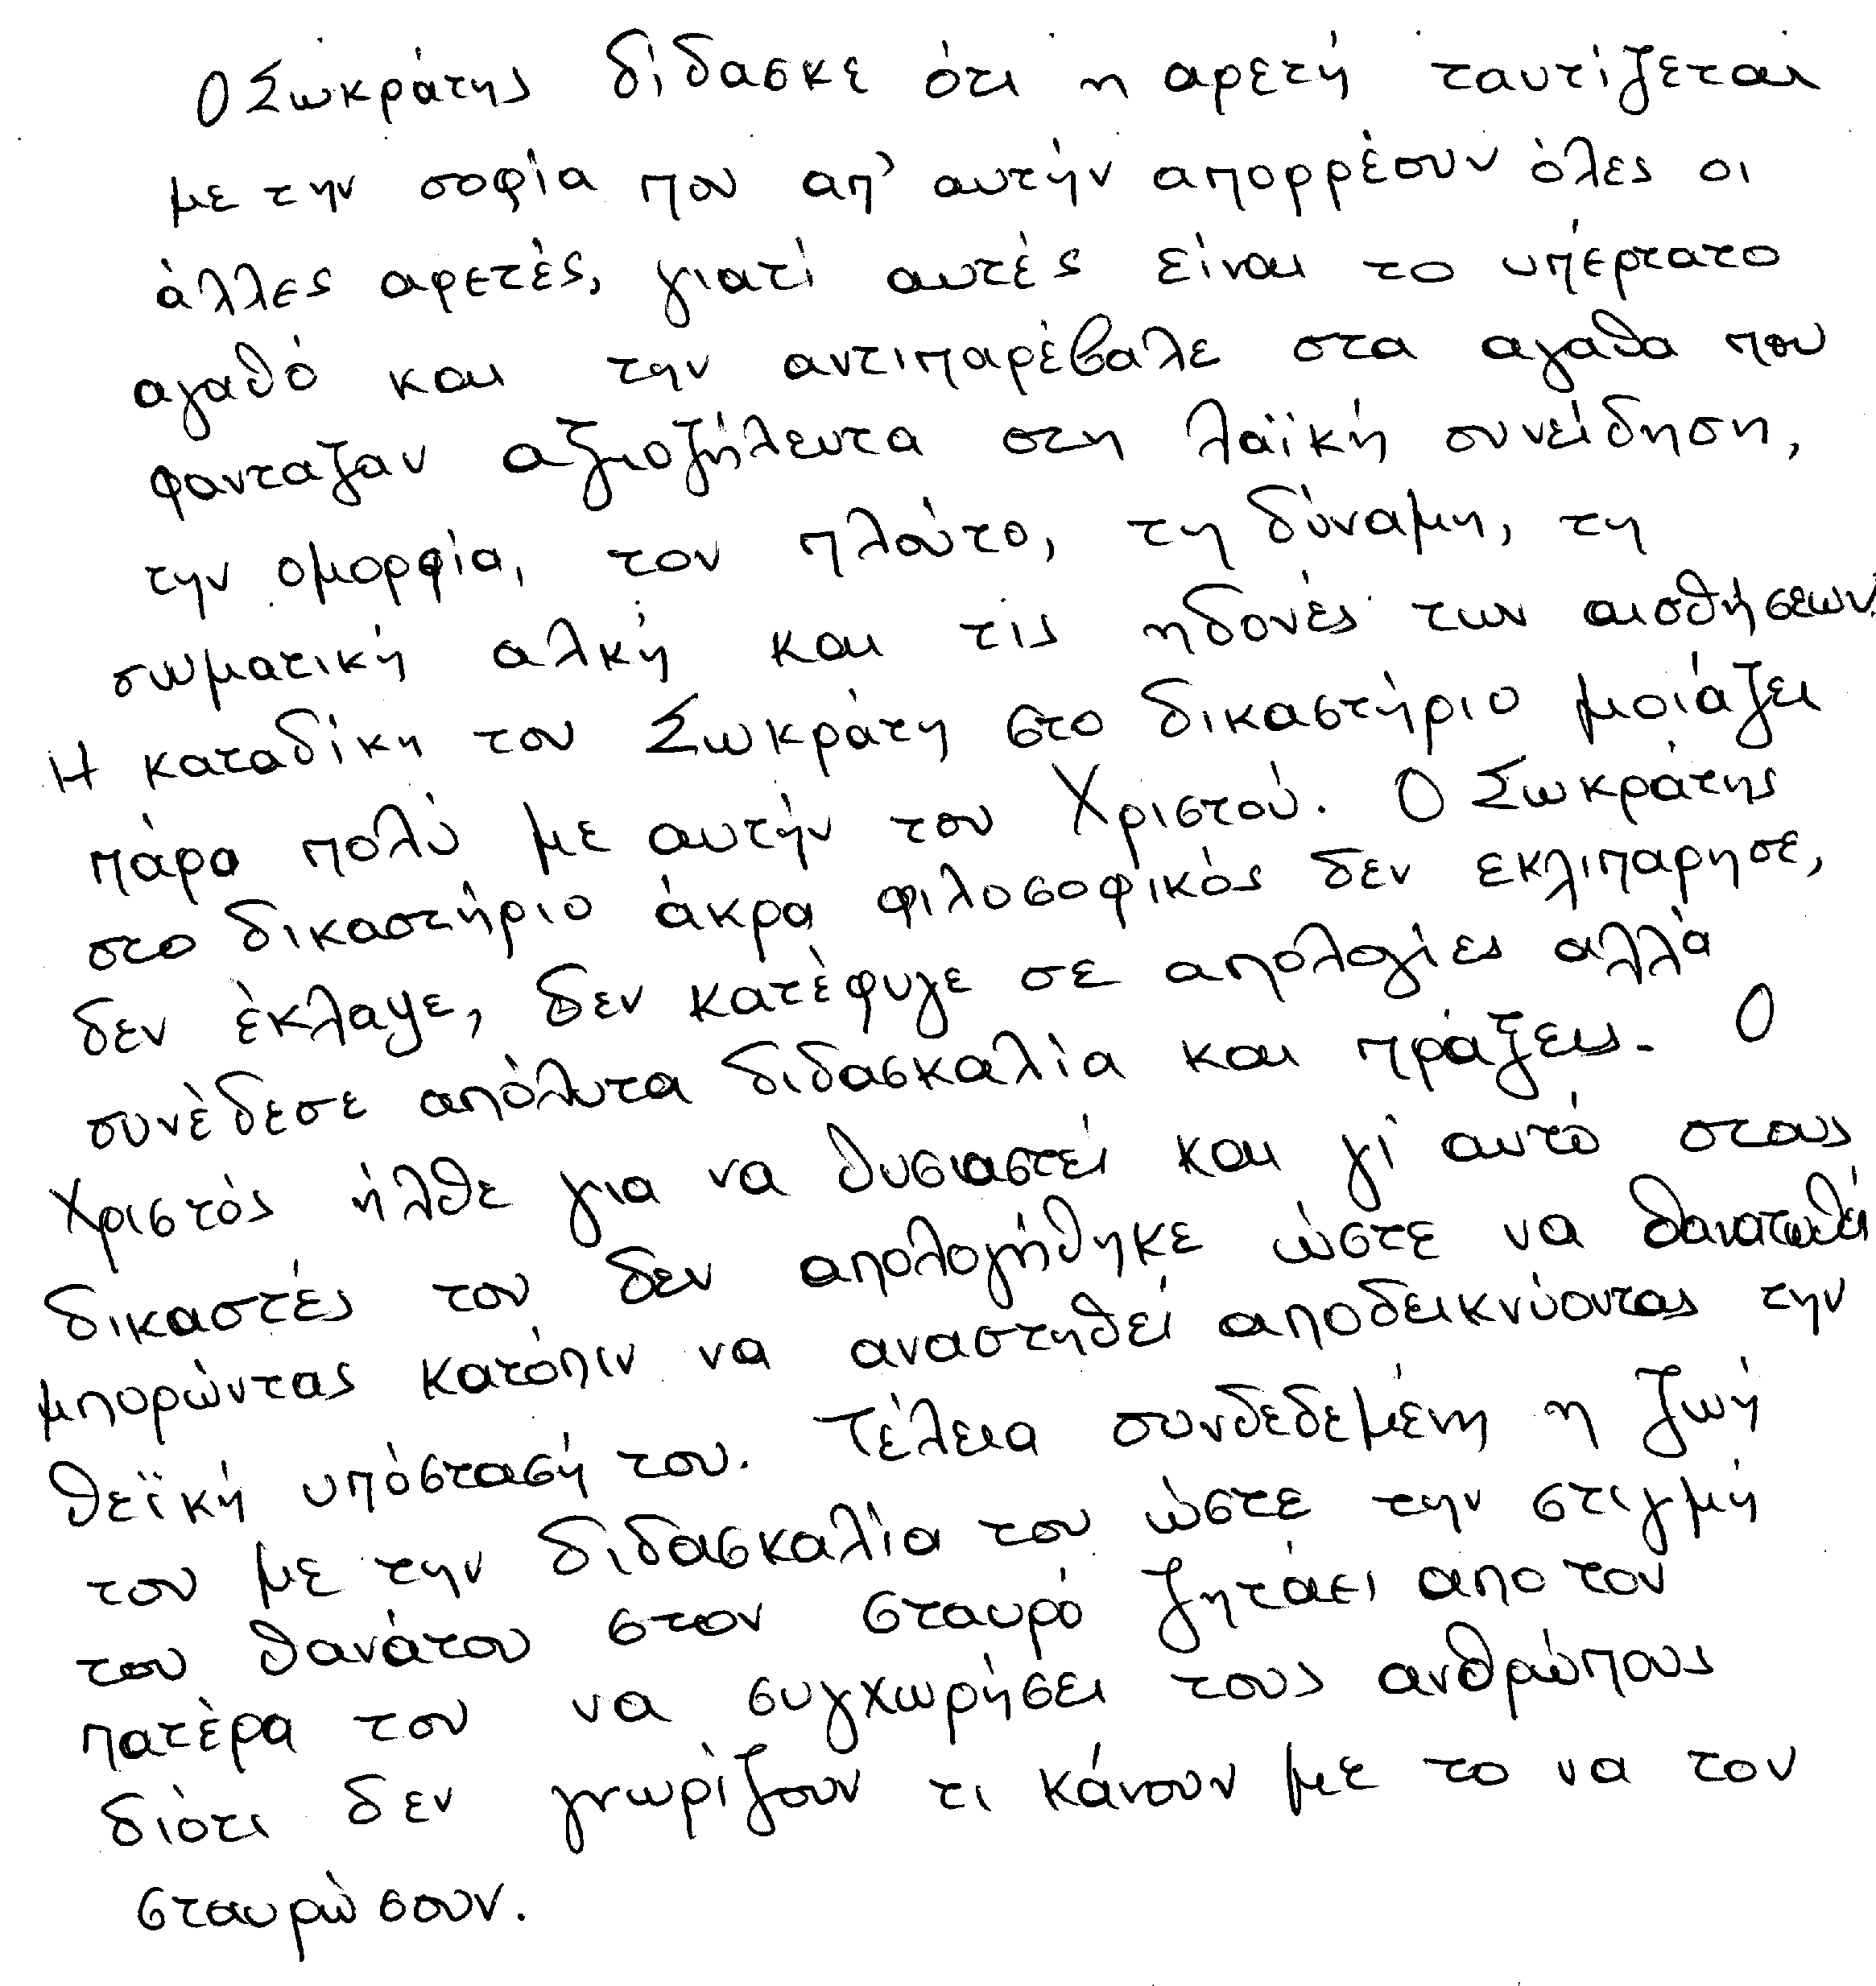 Ο Σωκράτης δίδασκε ότι η αρετή ταυτίζεται
με την σοφία που απ' αυτήν απορρέουν όλες οι
άλλες αρετές, γιατί αυτές είναι το υπέρτατο
αγαθό και την αντιπαρέβαλε στα αγαθα που
φανταζαν αξιοζήλευτα στη λαϊκή συνείδηση,
την ομορφία, τον πλούτο, τη δύναμη, τη
σωματική αλκή και τις ηδονές των αισθήσεων.
Η καταδίκη του Σωκράτη στο δικαστήριο μοιάζει
πάρα πολύ με αυτήν του Χριστού. Ο Σωκράτης
στο δικαστήριο άκρα φιλοσοφικός δεν εκλιπαρησε,
δεν έκλαψε, δεν κατέφυγε σε απολογίες αλλά
συνέδεσε απόλυτα διδασκαλία και πράξεις. Ο
Χριστός ήλθε για να θυσιαστεί και γι' αυτό στους
δικαστές του δεν απολογήθηκε ώστε να θανατωθεί
μπορώντας κατόπιν να αναστηθεί αποδεικνύοντας την
θεϊκή υπόστασή του. Τέλεια συνδεδεμένη η ζωή
του με την διδασκαλία του ώστε την στιγμή
του θανάτου στον σταυρό ζητάει απο τον
πατέρα του να συγχωρήσει τους ανθρώπους
διότι δεν γνωρίζουν τι κάνουν με το να τον
σταυρώσουν.